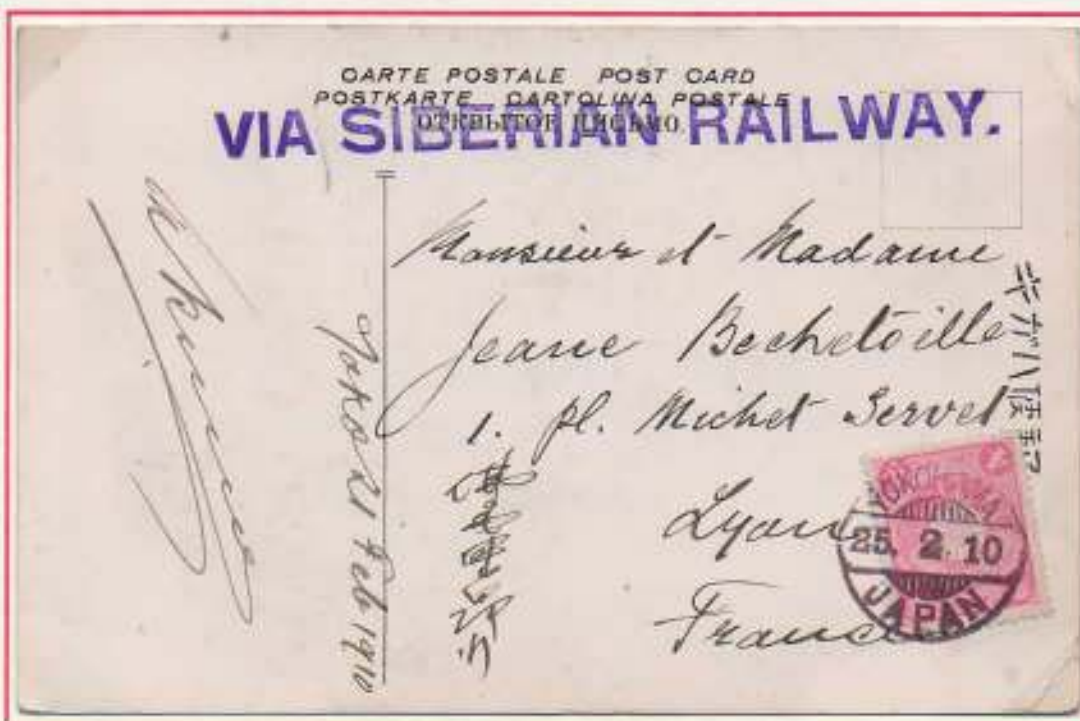 CARTE POSTALE POST CARD
POSTKARTE CARTOLINA POSTALE
ОТКРЫТОЕ ПИСЬМО.
VIA SIBERIAN RAILWAY.
Monsieur et Madame
Jeane Bechetoille
1. Pl. Michel Servet
Lyon
France
YOKOHAMA
25. 2. 10
JAPAN
Feb 1910